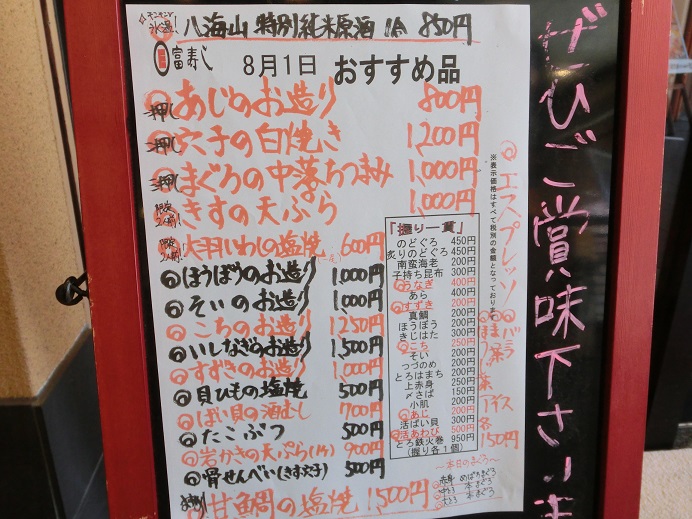 キンキンに
氷温! 八海山 特別純米原酒 1合 850円
富寿し 8月1日 おすすめ品
押し あじのお造り 800円
押し 穴子の白焼き 1200円
押し まぐろの中落ちつまみ 1,000円
きすの天ぷら 1,000円
大羽いわしの塩焼 600円
ほうぼうのお造り 1,000円
そいのお造り 1,000円
こちのお造り 1250円
いしなぎのお造り 1,500円
すずきのお造り 1,000円
貝ひもの塩焼 500円
ばい貝の酒むし 700円
たこぶつ 500円
岩かきの天ぷら(1ケ) 900円
骨せんべい(きす、穴子) 500円
甘鯛の塩焼 1,500円
「握り一貫」
のどぐろ 450円
炙りのどぐろ 450円
南蛮海老 200円
子持ち昆布 300円
うなぎ 400円
あら 400円
すずき 200円
真鯛 200円
ほうぼう 200円
きじはた 300円
こち 250円
そい 200円
つづのめ 200円
とろはまち 200円
上赤身 250円
〆さば 150円
小肌 200円
あじ 200円
活ばい貝 300円
活あわび 500円
とろ鉄火巻 950円
(握り各1個)
~本日のまぐろ~
赤身 めばちまぐろ
中とろ 本まぐろ
大とろ 本まぐろ
※表示価格はすべて税別の金額となっております。
エスプレッソ
バラ茶
ほうじ茶
アイス
各150円
ぜひご賞味下さいませ